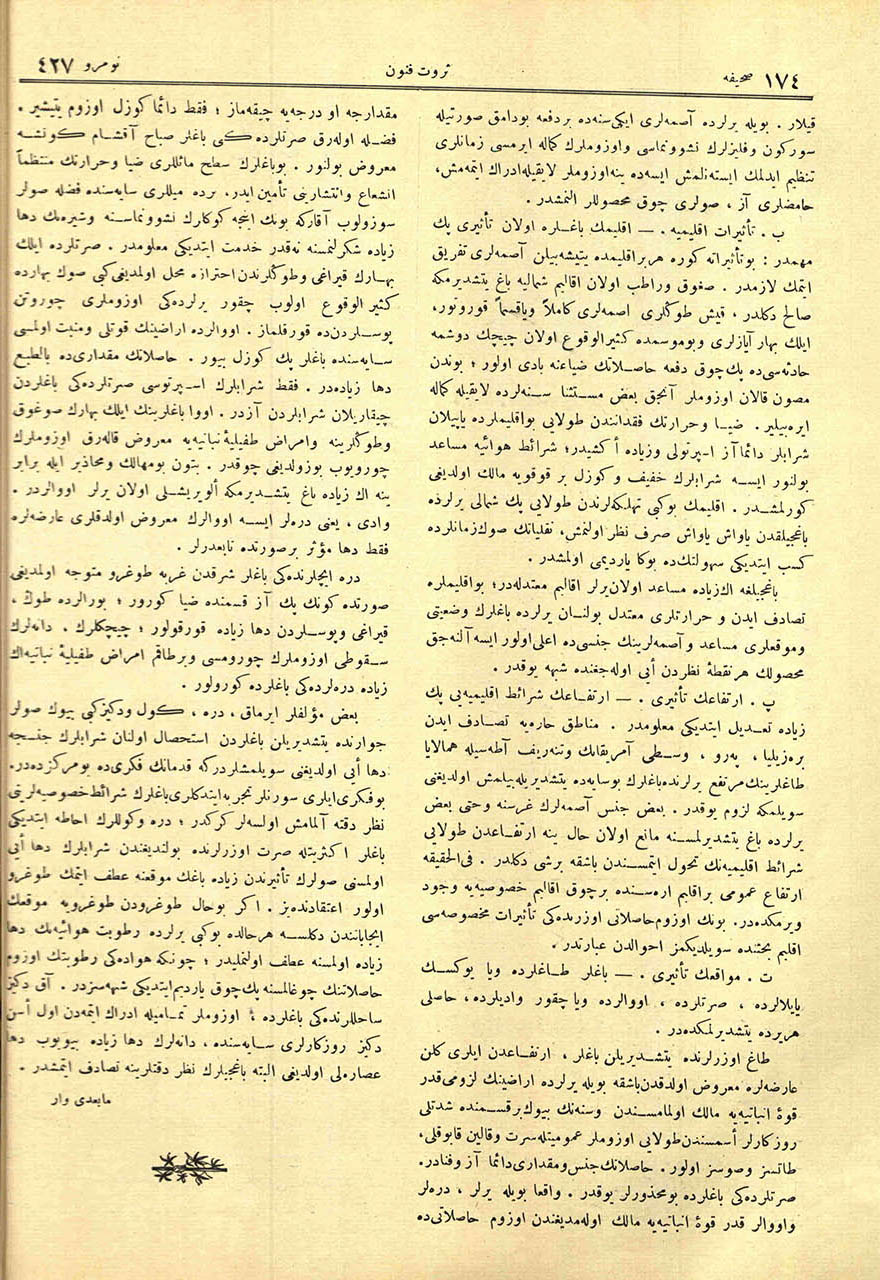 ١٧٤ صحیفه
ثروت فنون
نومرو ٤٢٧
قیلار . بویله یرلرده آصمه‌لری ایکی سنه‌ده بر دفعه بودامق صورتیله
سورکون وفلیزلرك نشوونماسی واوزوملرك كماله ایرمسی زمانلری
تنظیم ایدلمك ایسته‌نلمش ایسه‌ده ینه اوزوملر لایقیله ادراك ایتمه‌مش،
حامضلری آز ، صولری چوق محصوللر النمشدر .
ب . تأثیرات اقلیمیه . — اقلیمك باغلره اولان تأثیری پك
مهمدر : بوتأثیراته کوره هربر اقلیمده یتیشه‌بیلن آصمه‌لری تفریق
ایتمك لازمدر . صغوق وراطب اولان اقالیم شمالیه باغ یتشدیرمكه
صالح دکلدر ، قیش طوکلری اصمه‌لری كاملاً ویاقسماً قوروتور،
ایلك بهار آیازلری وبوموسمده كثیرالوقوع اولان چیچك دوشمه
حادثه‌سی‌ده پك چوق دفعه حاصلاتك ضیاعنه بادی اولور ؛ بوندن
مصون قالان اوزوملر آنجق بعض مستثنا سنه‌لرده لایقیله كماله
ایره‌بیلیر . ضیا وحرارتك فقدانندن طولایی بواقلیملرده یاپیلان
شرابلر دائما آز اسپرتولی وزیاده أكشیدر؛ شرائط هوائیه مساعد
بولنور ایسه شرابلرك خفیف وكوزل بر قوقویه مالك اولدیغی
كورلمشدر . اقلیمك بوكبی تهلكه‌لرندن طولایی پك شمالی یرلرده
باغجیلقدن یاواش یاواش صرف نظر اولنمش، نقلیاتك صوك زمانلرده
كسب ایتدیكی سهولتك‌ده بوكا یاردیمی اولمشدر .
باغجیلغه اك زیاده مساعد اولان یرلر اقالیم معتدله‌در؛ بواقلیملره
تصادف ایدن و حرارتلری معتدل بولنان یرلرده باغلرك وضعیتی
وموقعلری مساعد وآصمه‌لرینك جنسی‌ده اعلی اولور ایسه آلنه‌جق
محصولك هر نقطهٔ نظردن أیی اوله‌جغنده شبهه یوقدر .
پ . ارتفاعك تأثیری . — ارتفاعك شرائط اقلیمیه‌یی پك
زیاده تعدیل ایتدیكی معلومدر . مناطق حاره‌یه تصادف ایدن
بره‌زیلیا ، په‌رو ، وسطی آمریقانك وتنه‌ریف آطه‌سیله همالایا
طاغلرینك مرتفع یرلرنده باغلرك بوسایه‌ده یتشدیریله‌بیلمش اولدیغنی
سویلمكه لزوم یوقدر . بعض جنس آصمه‌لرك غرسنه وحتی بعض
یرلرده باغ یتشدیرلمسنه مانع اولان حال ینه ارتفاعدن طولایی
شرائط اقلیمیه‌نك تحول ایتمسندن باشقه برشی دكلدر . فی‌الحقیقه
ارتفاع عمومی براقلیم اره‌سنده برچوق اقالیم خصوصیه‌یه وجود
ویرمكده‌در. بونك اوزوم حاصلاتی اوزرنده‌كی تأثیرات مخصوصه‌سی
اقلیم بحثنده سویلدیكمز احوالدن عبارتدر .
ت . مواقعك تأثیری . — باغلر طاغلرده ویا یوكسك
یایلالرده ، صرتلرده ، اووالرده ویا چقور وادیلرده، حاصلی
هر یرده یتشدیرلمكده‌در .
طاغ اوزرلرنده یتشدیریلن باغلر ، ارتفاعدن ایلری كلن
عارضه‌لره معروض اولدقدن باشقه بویله یرلرده اراضینك لزومی قدر
قوهٔ انباتیه‌یه مالك اولمامسندن وسنه‌نك بیوك برقسمنده شدتلی
روزكارلر أسمسندن طولایی اوزوملر عمومیتله سرت وقالین قابوقلی،
طاتسز وصوسز اولور . حاصلاتك جنس ومقداری دائما آز وفنادر.
صرتلرده‌كی باغلرده بو محذورلر یوقدر . واقعا بویله یرلر ، دره‌لر
واووالر قدر قوهٔ انباتیه‌یه مالك اوله‌مدیغندن اوزوم حاصلاتی‌ده
مقدارجه او درجه‌یه چیقه‌ماز ؛ فقط دائما كوزل اوزوم یتیشیر .
فضله اوله‌رق صرتلرده‌كی باغلر صباح آقشام كونشه
معروض بولنور . بوباغلرك سطح مائللری ضیا وحرارتك منتظماً
انشعاع وانتشارینی تأمین ایدر. برده میللری سایه‌سنده فضله صولر
سوزولوب آقاركه بونك اینجه كوكلرك نشوونماسنه وشیره‌نك دها
زیاده شكرلنمسنه نه‌قدر خدمت ایتدیكی معلومدر . صرتلرده ایلك
بهارك قیراغی وطوكلرندن احترازه محل اولمدیغی كبی صوك بهارده
كثیرالوقوع اولوب چقور یرلرده‌كی اوزوملری چوروتن
پوسلردن‌ده قورقلماز . اووالرده اراضینك قوتلی ومنبت اولمسی
سایه‌سنده باغلر پك كوزل بیور . حاصلاتك مقداری‌ده بالطبع
دها زیاده‌در . فقط شرابلرك اسپرتوسی صرتلرده‌كی باغلردن
چیقاریلان شرابلردن آزدر . اووا باغلرینك ایلك بهارك صوغوق
وطوكلرینه وامراض طفیلیهٔ نباتیه‌یه معروض قاله‌رق اوزوملرك
چوروبوب بوزولدیغی چوقدر . بتون بومهالك ومحاذیر ایله برابر
ینه اك زیاده باغ یتشدیرمكه ألویریشلی اولان یرلر اووالردر .
وادی ، یعنی دره‌لر ایسه اووالرك معروض اولدقلری عارضه‌لره
فقط دها مؤثر بر صورتده تابعدرلر .
دره ایچلرنده‌كی باغلر شرقدن غربه طوغرو متوجه اولمدیغی
صورتده كونك پك آز قسمنده ضیا كورور ؛ بورالرده طوك ،
قیراغی وپوسلردن دها زیاده قورقولور ؛ چیچكلرك . دانه‌لرك
سقوطی اوزوملرك چورومسی وبرطاقم امراض طفیلیهٔ نباتیه اك
زیاده دره‌لرده‌كی باغلرده كورولور .
بعض مؤلفلر ایرماق ، دره ، كول ودكز كبی بیوك صولر
جوارنده یتشدیریلن باغلردن استحصال اولنان شرابلرك جنسجه
دها أیی اولدیغنی سویلمشلردركه قدمانك فكری‌ده بومركزده‌در.
بوفكری ایلری سورنلر تجربه ایتدكلری باغلرك شرائط خصوصیه‌لرینی
نظر دقته آلمامش اولسه‌لر كركدر ؛ دره وكوللرك احاطه ایتدیكی
باغلر اكثریتله صرت اوزرلرنده بولندیغندن شرابلرك دها أیی
اولمسنی صولرك تأثیرندن زیاده باغك موقعنه عطف ایتمك طوغرو
اولور اعتقادنده‌یز . اكر بوحال طوغرودن طوغرویه موقعك
ایجاباتندن دكلسه هر حالده بوكبی یرلرده رطوبت هوائیه‌نك دها
زیاده اولمسنه عطف اولنملیدر ؛ چونكه هواده‌كی رطوبتك اوزوم
حاصلاتنك چوغالمسنه پك چوق یاردیم ایتدیكی شبهه‌سزدر . آق دكز
ساحللرنده‌كی باغلرده ، اوزوملر تمامیله ادراك ایتمه‌دن اول أسن
دكز روزكارلری سایه‌سنده ، دانه‌لرك دها زیاده بیویوب دها
عصاره‌لی اولدیغی البته باغجیلرك نظر دقتلرینه تصادف ایتمشدر .
مابعدی وار